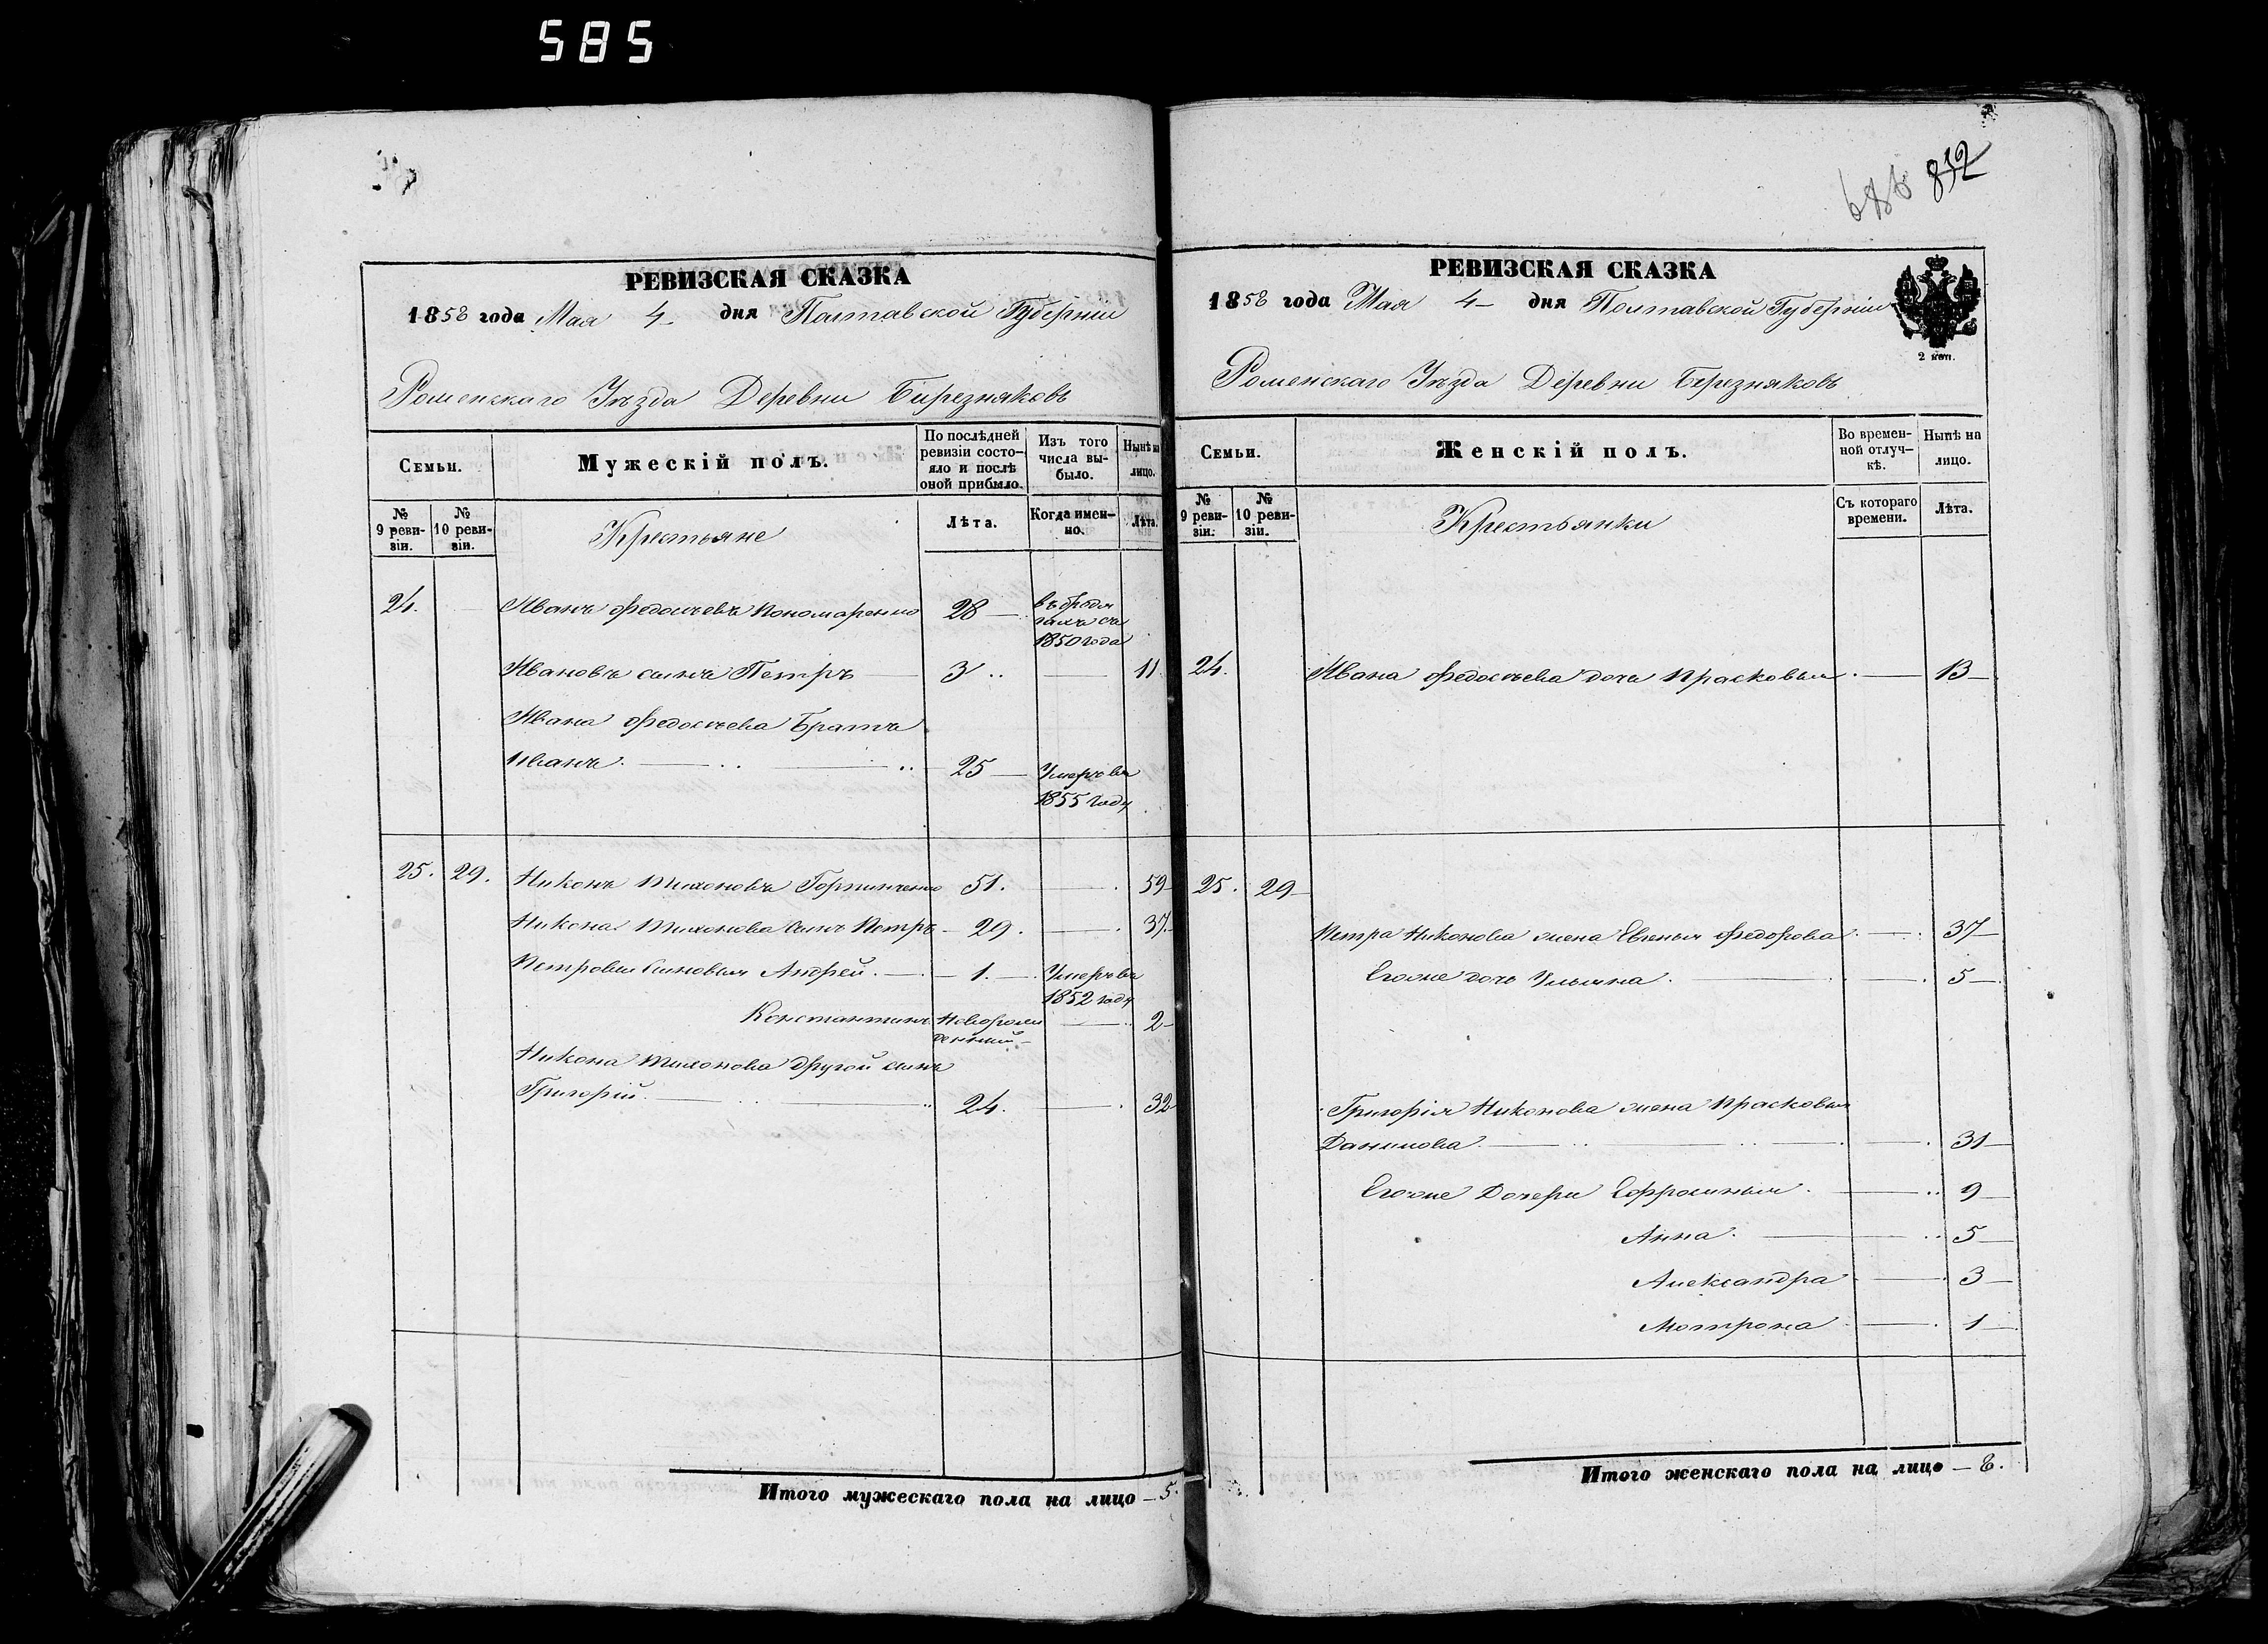 585
832
РЕВИЗСКАЯ СКАЗКА
1858 года Мая 4 дня Полтавской Губерніи
Роменскаго Уѣзда Деревни Бирезняковъ
Семьи.
Мужескій полъ.
По послѣдней ревизіи состояло и послѣ оной прибыло.
Изъ того числа выбыло.
Нынѣ на лицо.
№ 9 ревизіи.
№ 10 ревизіи.
Крестьяне
Лѣта.
Когда именно.
Лѣта.
24. Иванъ Федосѣевъ Пономаренко 28 — въ бродя
гахъ съ
1850 года
Ивановъ сынъ Петръ 3 — 11
Ивана Федосѣева Братъ
Иванъ. — 25 — Умеръ въ
1855 году
25. 29. Никонъ Тихоновъ Горпинченко 51. — 59
Никона Тихонова сынъ Петръ — 29. — 37.
Петровы сыновья Андрей. — 1. — Умеръ въ
1852 году
Константинъ Новорож
денный — 2
Никона Тихонова другой сынъ
Григорій. — 24. — 32
Итого мужескаго пола на лицо — 5.
РЕВИЗСКАЯ СКАЗКА
1858 года Мая 4 — дня Полтавской Губерніи
2 коп.
Роменскаго Уѣзда Деревни Березняковъ
Семьи.
Женскій полъ.
Во временной отлучкѣ.
Нынѣ на лицо.
№ 9 ревизіи.
№ 10 ревизіи.
Крестьянки
Съ котораго времени.
Лѣта.
24. Ивана Федосѣева дочь Прасковья. — 13
25. 29
Петра Никонова жена Евгенья Федорова. — 37
Егоже дочь Ульяна. — 5
Григорія Никонова жена Прасковья
Данилова. — 31
Егоже Дочери Ефросинья. — 9
Анна. — 5
Александра — 3
Мотрона — 1
Итого женскаго пола на лицо — 8.